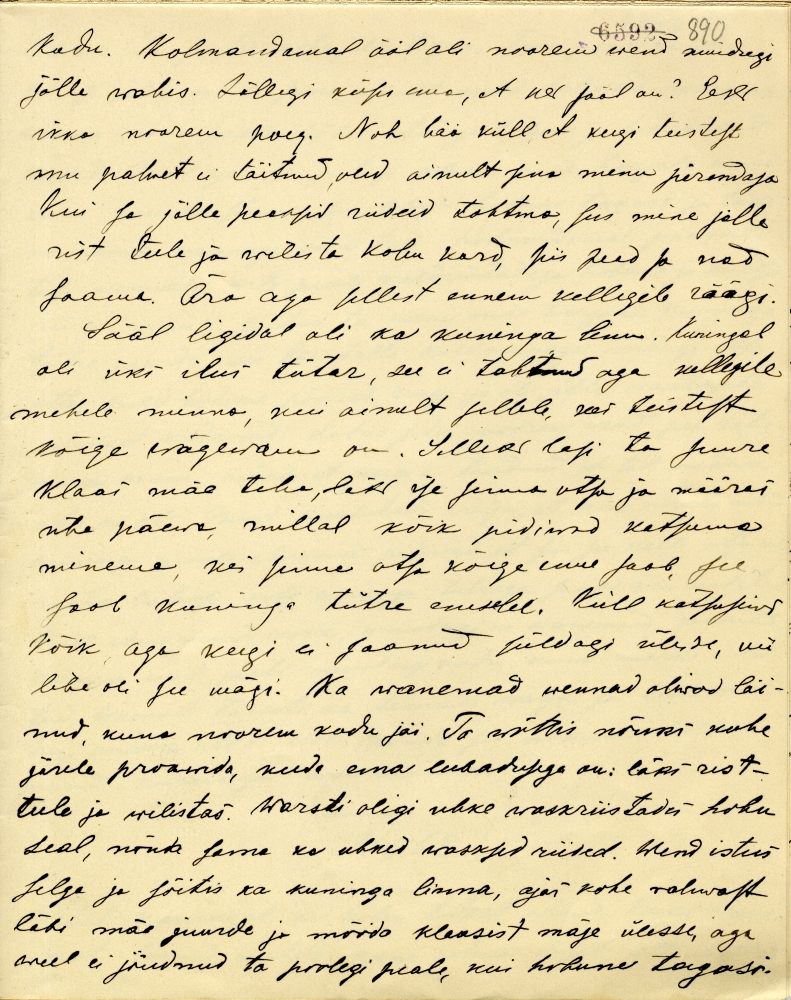 6592 890
kodu. Kolmandamal ööl oli noorem wend muidugi
jälle wahis. Sellegi küsis ema, et kes sääl on? Eesk
ikka noorem poeg. Noh hää küll et keegi teistest
mu palwet ei täitnud, oled ainult sina minu pärandaja
Kui sa jälle peaksid riideid tahtma, sus mine jälle
rist teele ja wilista kolm kord, siis saad sa nad
saama. Ära aga sellest ennem kellegile räägi.
Sääl ligidal oli ka kuninga linn. Kuningal
oli üks ilus tütar, see ei tahtnud aga kellegile
mehele minna, kui ainult sellele, kes teistest
kõige wägewam on. Selleks lasi ta suure
klaas mäe teha, läks ise sinna otsa ja määras
ühe päewa, millal kõik pidiwad katsuma
minema, kes sinna otsa kõige enne saab, see
saab kuninga tütre enesele. Küll katsusiwad
kõik, aga keegi ei saanud süldagi ülesse, nii
libe oli see mägi. Ka wanemad wennad oliwad läi-
nud, kuna noorem kodu jäi. Ta wõttis nõuks kohe
järele proowida, kuda ema lubadusega on: läks rist-
teele ja wilistas. Warsti oligi uhke waskriistades hobu
seal, nõnda sama ka uhked wasksed riided. Wend istus
selga ja sõitis ka kuninga linna, ajas kohe rahwast
läbi mäe juurde ja mööda klaasist mäge ülesse, aga
weel ei jõudnud ta poolegi peale, kui hobune tagasi-